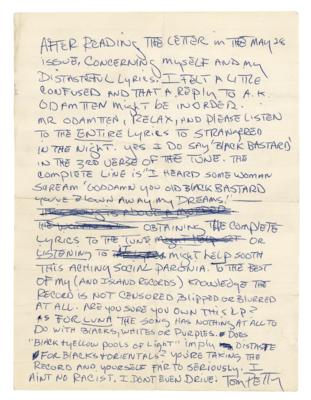 AFTER READING THE LETTER in THE MAY 28
ISSUE, CONCERNING MYSELF AND MY
DISTASTEFUL LYRICS. I FELT A LITTLE
CONFUSED AND THAT A REPLY TO A.K.
ODAMTTEN MIGHT BE IN ORDER.
MR ODAMTEN, RELAX, AND PLEASE LISTEN
TO THE ENTIRE LYRICS TO STRANGERED
IN THE NIGHT. YES I DO SAY 'BLACK BASTARD'
IN THE 3RD VERSE OF THE TUNE. THE
COMPLETE LINE IS "I HEARD SOME WOMAN
SCREAM 'GODDAMN YOU OLD BLACK BASTARD
YOU'VE BLOWN AWAY MY DREAMS.'
OBTAINING THE COMPLETE
LYRICS TO THE TUNE OR
LISTENING TO MIGHT HELP SOOTH
THIS ACHING SOCIAL PARONIA. TO THE BEST
OF MY (AND ISLAND RECORDS) KNOWLEDGE THE
RECORD IS NOT CENSORED BLIPPED OR BLURRED
AT ALL. ARE YOU SURE YOU OWN THIS LP?
AS FOR LUNA THE SONG HAS NOTHING AT ALL TO
DO WITH BLACKS, WHITES OR PURPLES. DOES
"BLACK & YELLOW POOLS OF LIGHT" IMPLY DISTASTE
FOR BLACKS & ORIENTALS? YOU'RE TAKING THE
RECORD AND YOURSELF FAR TO SERIOUSLY. I
AINT NO RACIST. I DONT EVEN DRIVE. Tom Petty